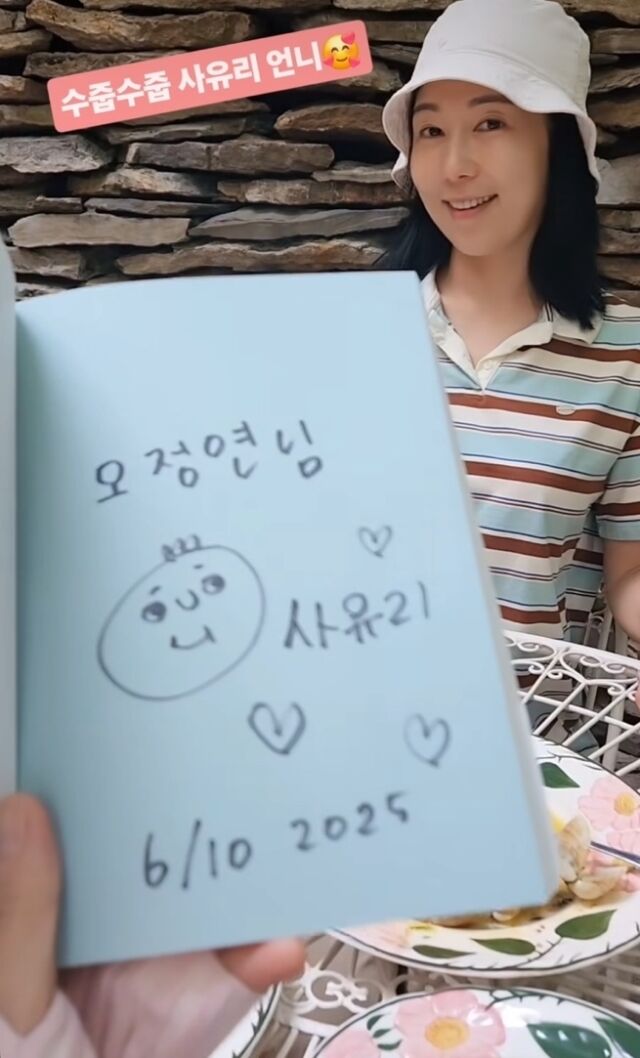 수줍수줍 사유리 언니🥰
오정연님
사유리
6/10 2025